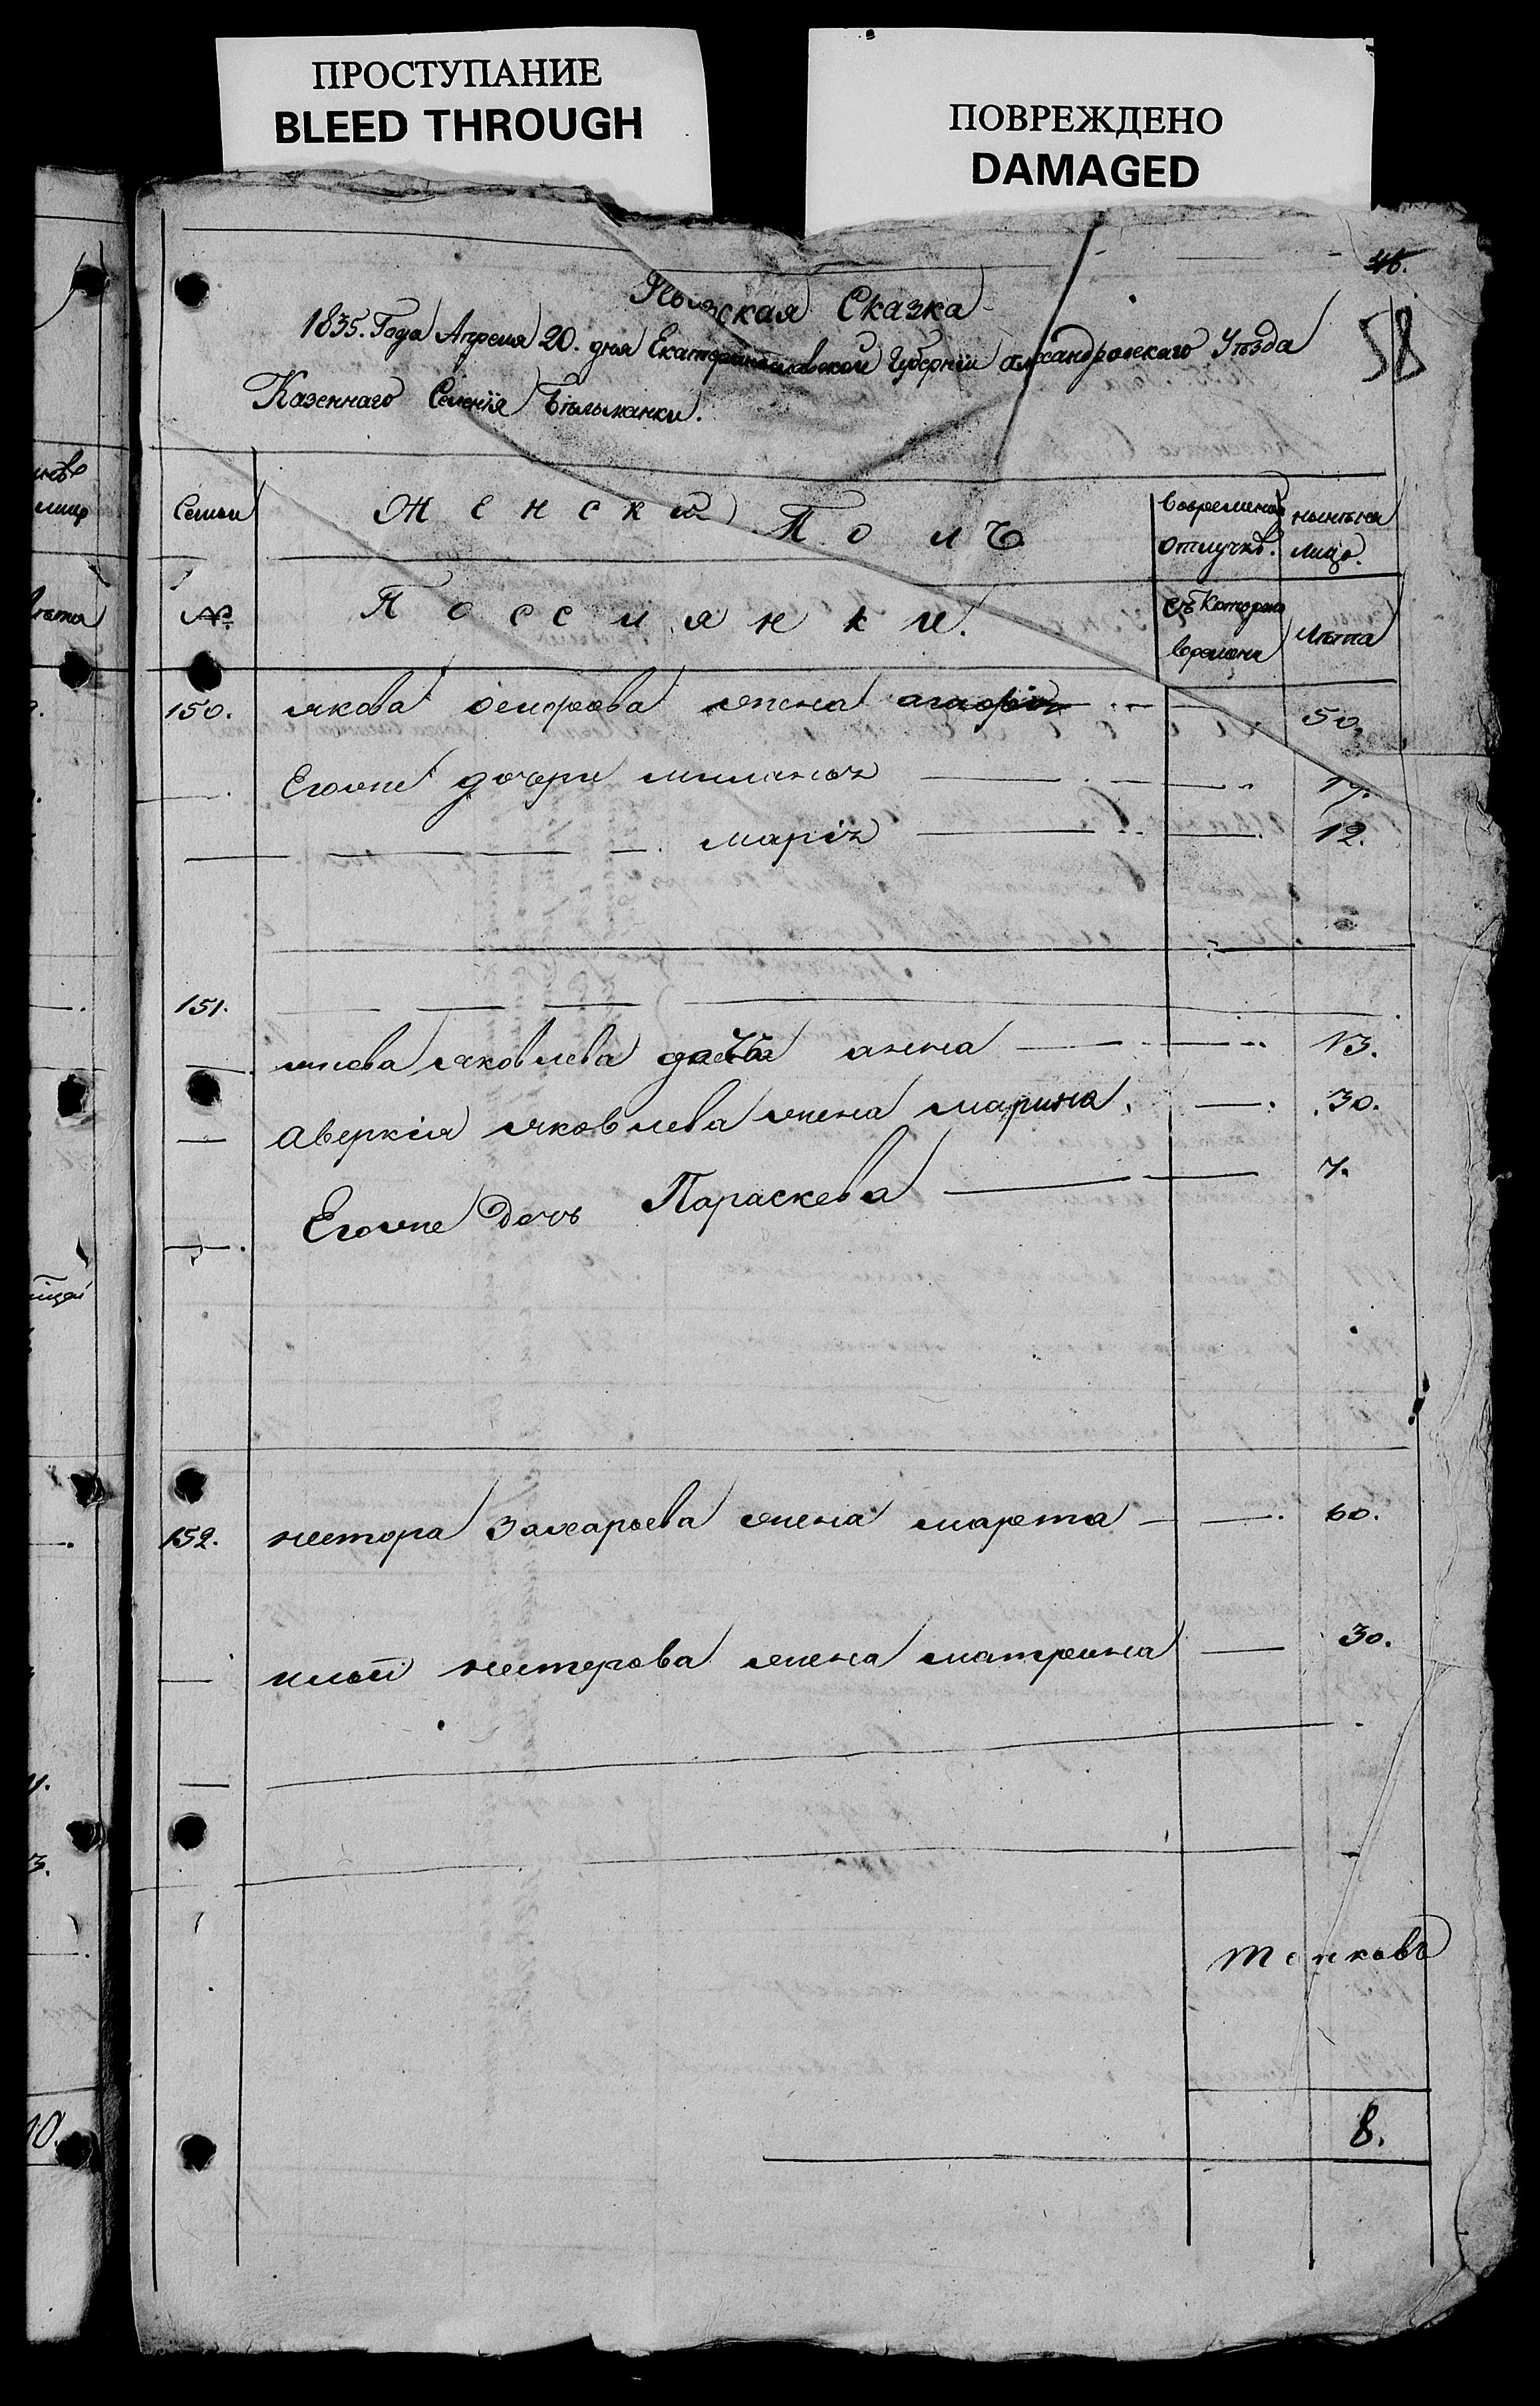 ПРОСТУПАНИЕ
BLEED THROUGH
ПОВРЕЖДЕНО
DAMAGED
46.
58
Ревизская Сказка
1835. Года Апреля 20. дня Екатеринославской Губернии Александровскаго Уѣзда
Казеннаго Селенія Бѣлманки.
Семьи Женскій Полъ Вовременной отлучкѣ. нынѣ на лицо.
№. Поселянки. Съ Котораго времени Лѣта
150. якова жена 50.
Егожне дочери меланья 17.
марія 12.
151.
яковлева дочь анна 13.
аверкія яковлева жена марина. 30.
Егожне Дочь Параскева 7.
152. нестора Захарьева жена марфа 60.
ильи нестерова жена матрешна 30.
8.